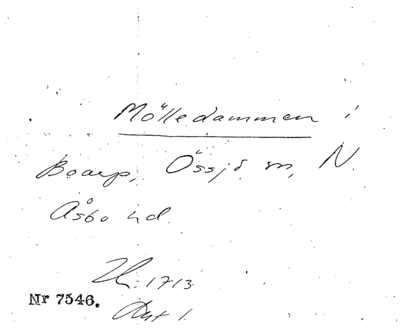 Mölledammen i
Boarp, Össjö sn, N.
Åsbo hd.
1713
Nr 7546.